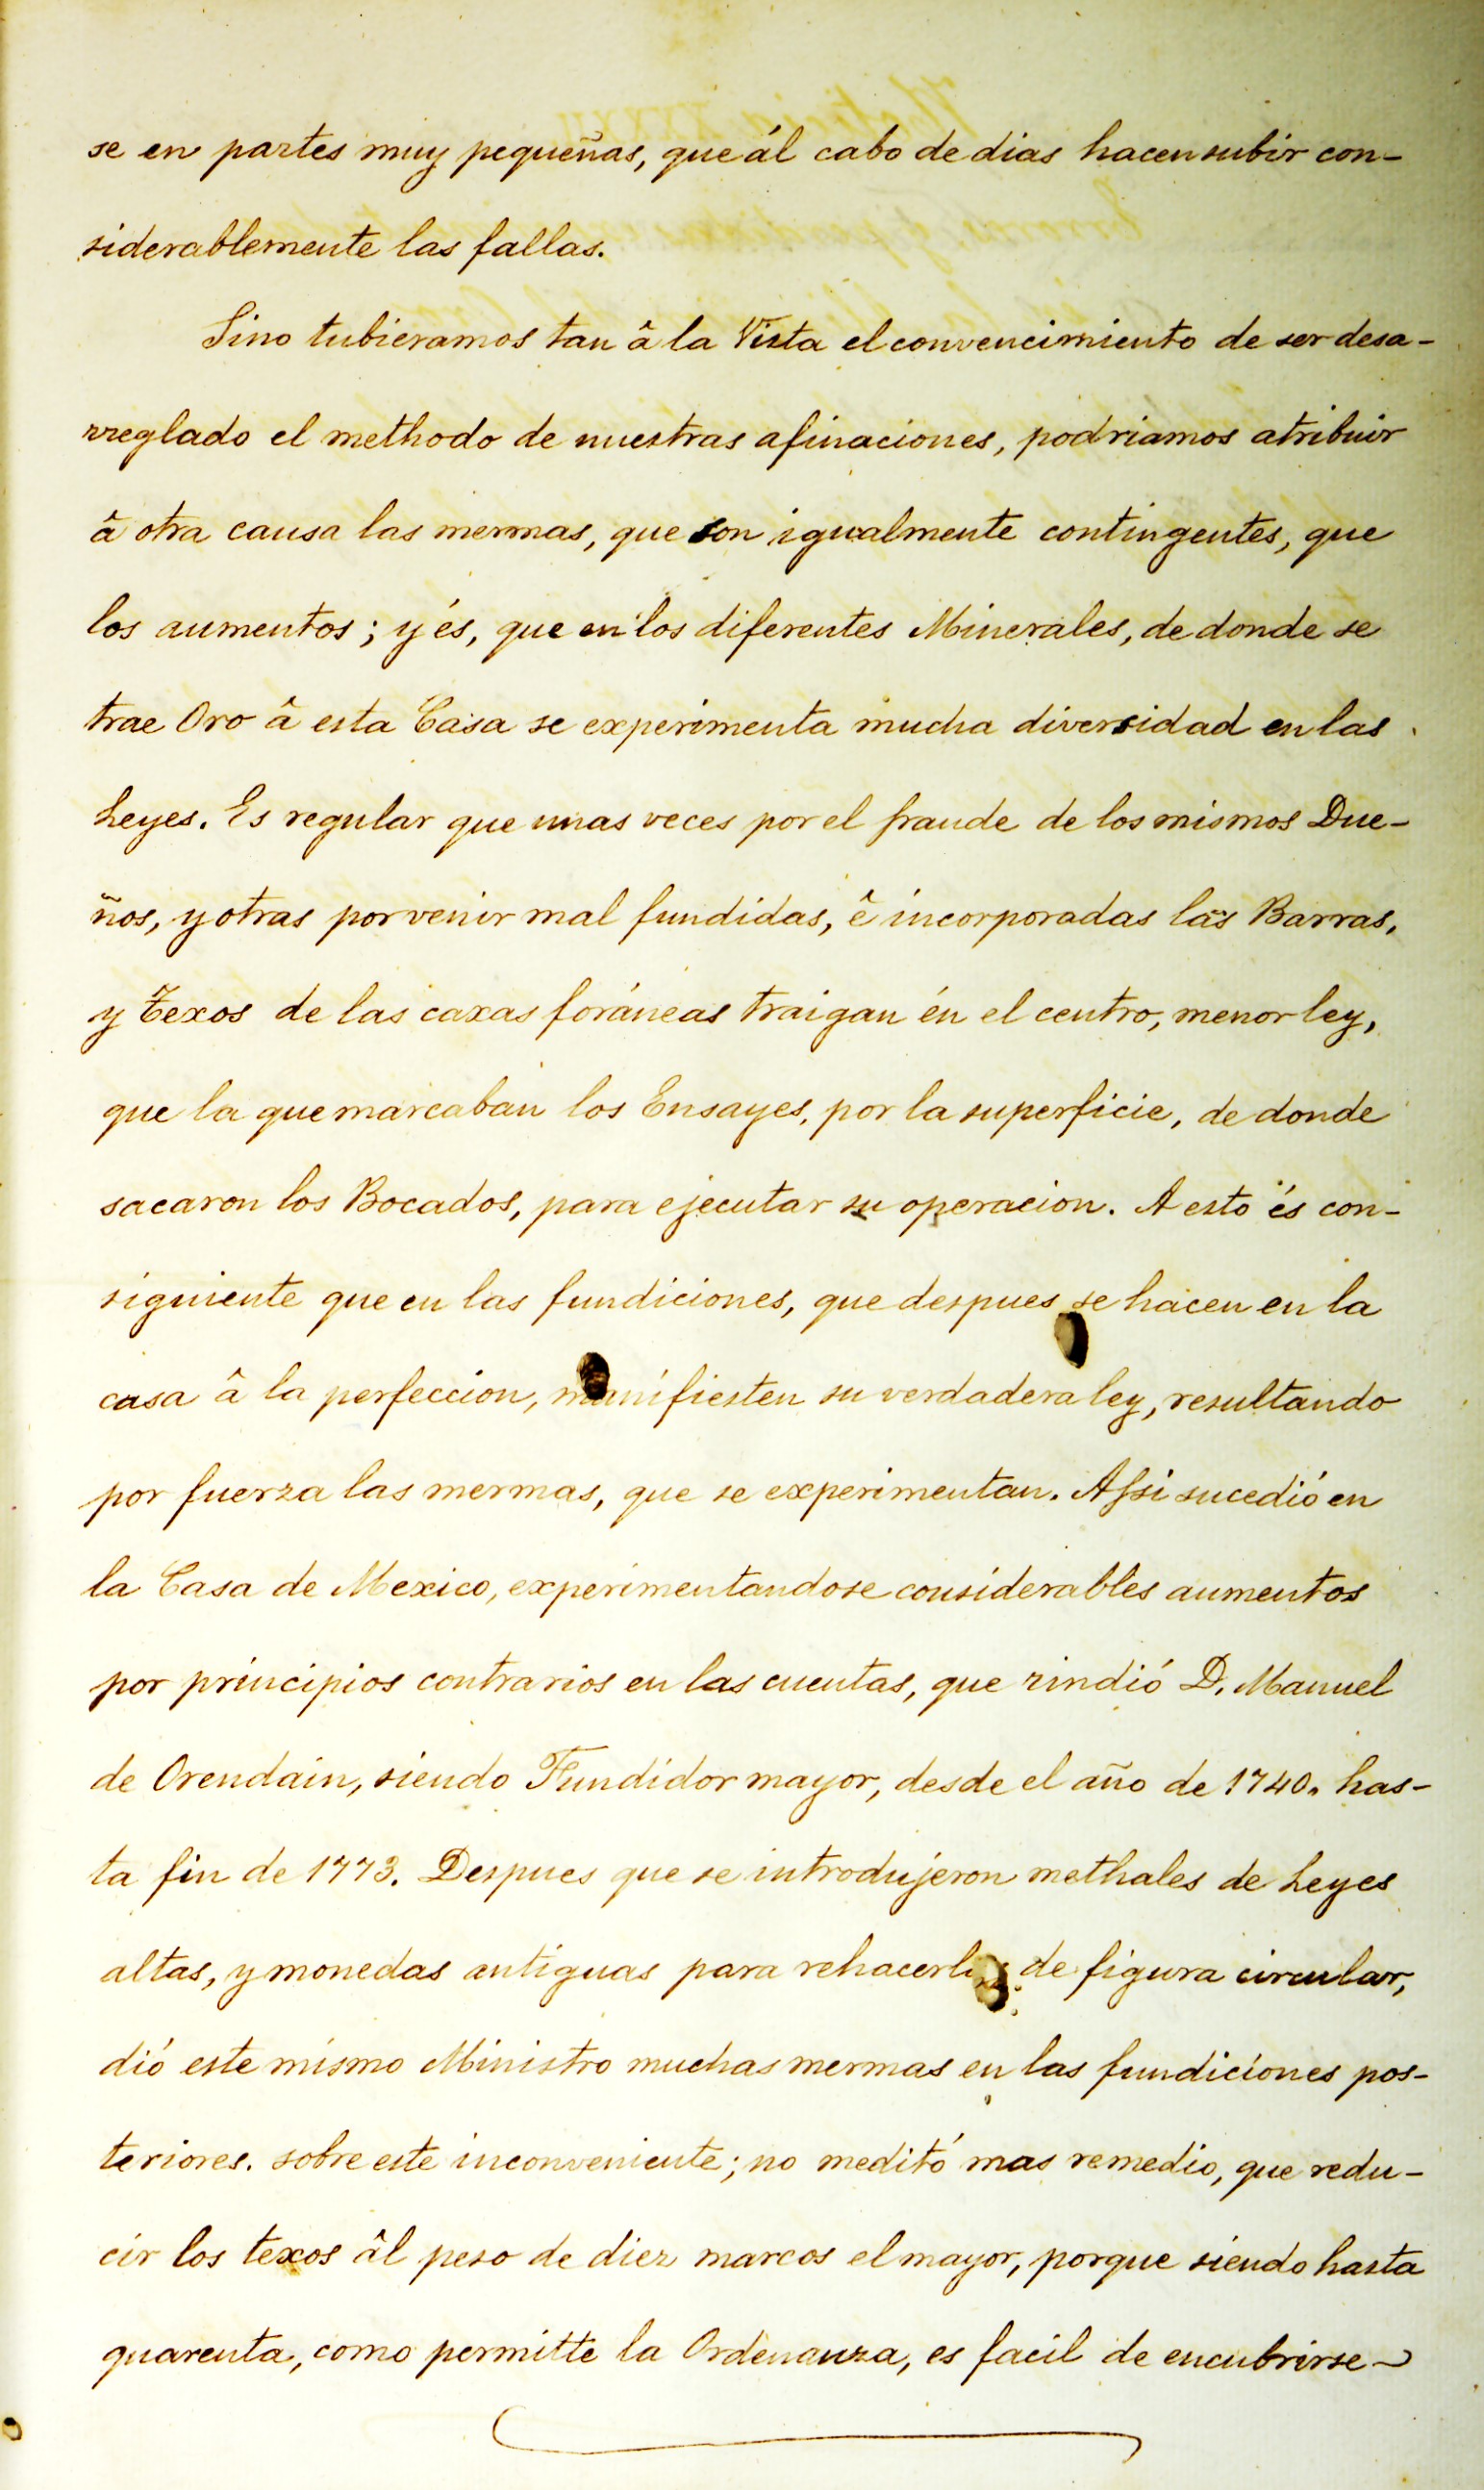 se en partes muy pequeñas, que ál cabo de dias hacen subir con-
siderablemente las fallas.
Sino tubieramos tan â la Vista el convencimiento de ser desa-
rreglado el methodo de nuestras afinaciones, podriamos atribuir
â otra causa las mermas, que son igualmente contingentes, que
los aumentos; y és, que en los diferentes Minerales, de donde se
trae Oro â esta Casa se experimenta mucha diversidad en las
Leyes. Es regular que unas veces por el fraude de los mismos Due-
ños, y otras por venir mal fundidas, ê incorporadas las Barras,
y Texos de las caxas foráneas traigan én el centro, menor ley,
que la que marcaban los Ensayes, por la superficie, de donde
sacaron los Bocados, para ejecutar su operacion. A esto és con-
siguiente que en las fundiciones, que despues se hacen en la
casa â la perfeccion, manifiesten su verdadera ley, resultando
por fuerza las mermas, que se experimentan. Assi sucedió en
la Casa de Mexico, experimentandose considerables aumentos
por principios contrarios en las cuentas, que rindió D. Manuel
de Orendain, siendo Fundidor mayor, desde el año de 1740. has-
ta fin de 1773. Despues que se introdujeron methales de Leyes
altas, y monedas antiguas para rehacerlas de figura circular,
dió este mismo Ministro muchas mermas en las fundiciones pos-
teriores. sobre este inconveniente; no meditó mas remedio, que redu-
cir los texos âl peso de diez marcos el mayor, porque siendo hasta
quarenta, como permitte la Ordenanza, es facil de encubrirse